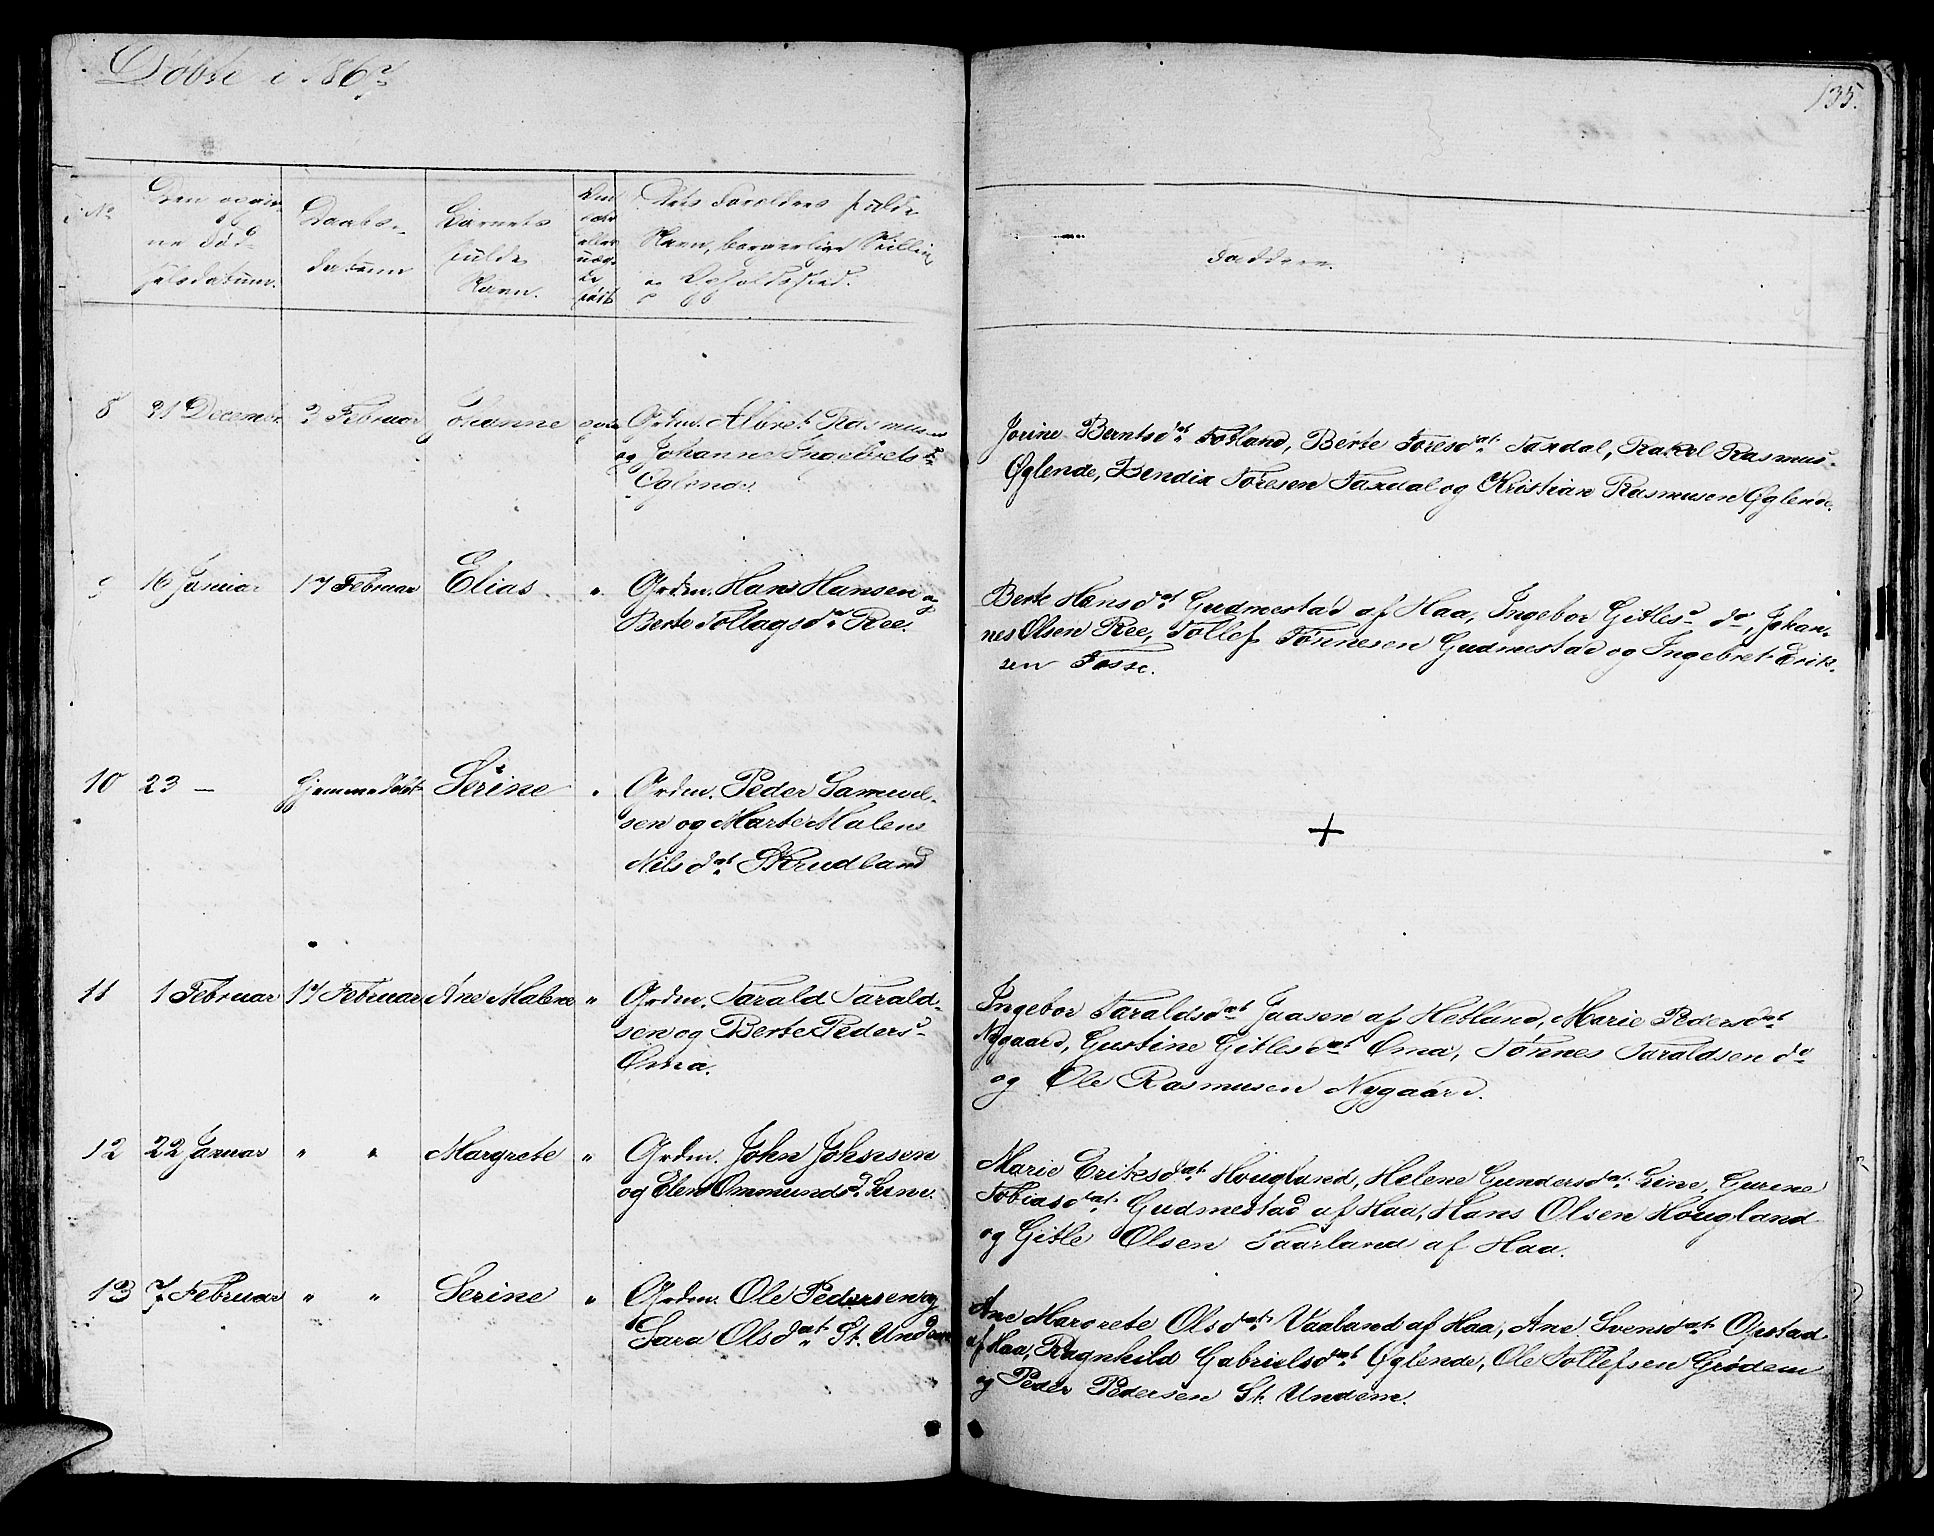 Døbte i 1867
135.
No
Den opgivne Fødselsdatum.
Daabsdatum
Barnets fulde Navn.
Dets Forældres fulde Navn, borgerlige Stilling og Opholdssted.
Faddere.
8 31 December 3 Februar Johanne Grdm. Albret Rasmusen
og Johanne Ingebrets D.
Øglende.
Jorine Berntsdat. Fotland, Berte Toresdat. Taxdal, Rakel Rasmus-
Øglende, Bendix Toresen Taxdal og Kristian Rasmusen Øglende.
9 16 Januar 17 Februar Elias. " Grdm. Hans Hansen og
Berte Tollagsdat Ree.
Berte Hansdat Gudmestad af Haa, Ingebor Gitlesd do, Johan-
nes Olsen Ree, Tollef Tønnesen Gudmestad og Ingebret Erik-
sen Fosse.
10 23 — Hjemmedøbt Serine " Grdm. Peder Samuel-
sen og Marte Malene
Nilsdat. Skrudland
+
11 1 Februar 17 Februar Ane Malene " Grdm. Tarald Tarald-
sen og Berte Pedersd
Oma.
Ingebor Taraldsdat Jaasen af Hetland, Marie Pedersdat
Nygaard, Gustine Gitlesdat Oma, Tønnes Taraldsen do
og Ole Rasmusen Nygaard.
12 22 Januar " " Margrete " Grdm. John Johnsen
og Elen Ommundsd. Line.
Marie Eriksdat. Hougland, Helene Gundersdat. Line, Gurine
Tobiasdat. Gudmestad af Haa, Hans Olsen Hougland
og Gitle Olsen Taarland af Haa.
13 7 Februar " " Serine " Grdm. Ole Pedersen og
Sara Olsdat. St. Undem
Ane Margrete Olsdat. Vaaland af Haa, Ane Svensdat. Opstad
af Haa, Ragnhild Gabrielsdat Øglende, Ole Tollefsen Grødem
og Peder Pedersen St. Undem.